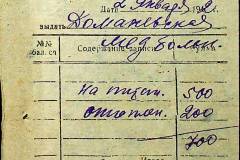 Дата 2 января 194
выдать Доманевской
№№ бал. сч Содержание записи
Мед. больн.
на питан. 500
отоплен. 200
700
Итого